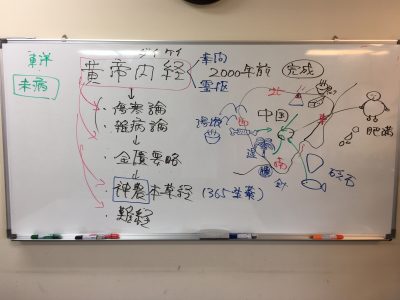 東洋
未病
ダイケイ
黄帝内経
素問
霊枢
2000年前
完成
・傷寒論
・雑病論
・金匱要略
・神農本草経 (365生薬)
・難経
中国
湯液
北
南
灸
鍼
砭石
肥満